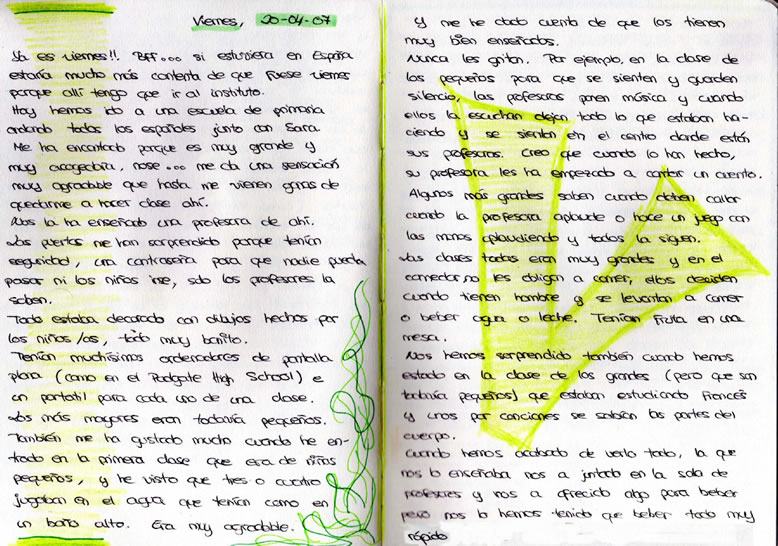 Viernes, 20-04-07
Ya es viernes!! Bff... si estuviera en España
estaría mucho más contenta de que fuese viernes
porque allí tengo que ir al instituto.
Hoy hemos ido a una escuela de primaria
andando todos los españoles junto con Sara.
Me ha encantado porque es muy grande y
muy acogedora, nose... me da una sensación
muy agradable que hasta me vienen ganas de
quedarme a hacer clase ahí.
Nos la ha enseñado una profesora de ahí.
Las puertas me han sorprendido porque tenían
seguridad, una contraseña para que nadie pueda
pasar ni los niños irse, solo los profesores la
saben.
Todo estaba decorado con dibujos hechos por
los niños/as, todo muy bonito.
Tenían muchísimos ordenadores de pantalla
plana (como en el Padgate High School) e
un portatil para cada uno de una clase.
Los más mayores eran todavía pequeños.
También me ha gustado mucho cuando he en-
trado en la primera clase que era de niños
pequeños, y he visto que tres o cuatro
jugaban en el agua que tenían como en
un baño alto. Era muy agradable.
Y me he dado cuenta de que los tienen
muy bien enseñados.
Nunca les gritan. Por ejemplo, en la clase de
los pequeños para que se sienten y guarden
silencio, las profesoras ponen música y cuando
ellos la escuchan dejan todo lo que estaban ha-
ciendo y se sientan en el centro donde están
sus profesoras. Creo que cuando lo han hecho,
su profesora les ha empezado a contar un cuento.
Algunos más grandes saben cuando deben callar
cuando la profesora aplaude o hace un juego con
las manos aplaudiendo y todos la siguen.
Las clases todas eran muy grandes y en el
comedor, no les obligan a comer, ellos deciden
cuando tienen hambre y se levantan a comer
o beber agua o leche. Tenían fruta en una
mesa.
Nos hemos sorprendido también cuando hemos
estado en la clase de los grandes (pero que son
todavía pequeños) que estaban estudiando Francés
y unos por canciones se sabían las partes del
cuerpo.
Cuando hemos acabado de verlo todo, la que
nos lo enseñaba nos a juntado en la sala de
profesores y nos a ofrecido algo para beber
pero nos lo hemos tenido que beber todo muy
rápido